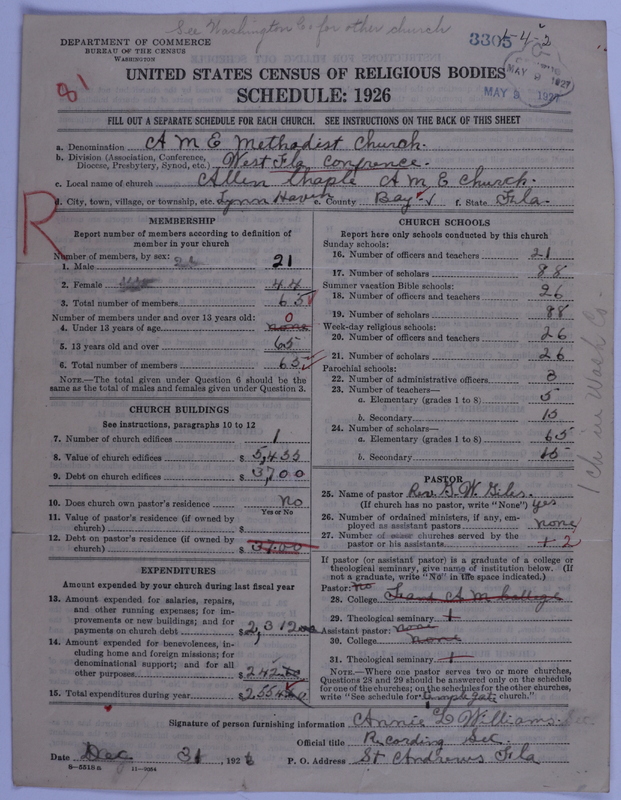 See Washington Co for other church
DEPARTMENT OF COMMERCE
BUREAU OF THE CENSUS
WASHINGTON
3305 1-4-2
MAY 9 1927
MAY 9 1927
81
UNITED STATES CENSUS OF RELIGIOUS BODIES
SCHEDULE: 1926
FILL OUT A SEPARATE SCHEDULE FOR EACH CHURCH. SEE INSTRUCTIONS ON THE BACK OF THIS SHEET
a. Denomination A M E Methodist Church.
b. Division (Association, Conference, Diocese, Presbytery, Synod, etc.) West Fla Conference.
c. Local name of church Allen Chaple A M E Church.
d. City, town, village, or township, etc. Lynn Haven e. County Bay f. State Fla.
R
MEMBERSHIP
Report number of members according to definition of
member in your church
Number of members, by sex:
1. Male 21
2. Female 44
3. Total number of members 65
Number of members under and over 13 years old: 0
4. Under 13 years of age none
5. 13 years old and over 65
6. Total number of members 65
NOTE.—The total given under Question 6 should be
same as the total of males and females given under Question 3.
CHURCH BUILDINGS
See instructions, paragraphs 10 to 12
7. Number of church edifices 1
8. Value of church edifices $ 5,455
9. Debt on church edifices $ 37.00
10. Does church own pastor's residence No
Yes or No
11. Value of pastor's residence (if owned by
church) $
12. Debt on pastor's residence (if owned by
church) $ 37.00
EXPENDITURES
Amount expended by your church during last fiscal year
13. Amount expended for salaries, repairs,
and other running expenses; for im-
provements or new buildings; and for
payments on church debt $ 2,312
14. Amount expended for benevolences, in-
cluding home and foreign missions; for
denominational support; and for all
other purposes $ 242
15. Total expenditures during year $ 2554
CHURCH SCHOOLS
Report here only schools conducted by this church
Sunday schools:
16. Number of officers and teachers 21
17. Number of scholars 88
Summer vacation Bible schools:
18. Number of officers and teachers 26
19. Number of scholars 88
Week-day religious schools:
20. Number of officers and teachers 26
21. Number of scholars 26
Parochial schools:
22. Number of administrative officers 3
23. Number of teachers—
a. Elementary (grades 1 to 8) 5
b. Secondary 15
24. Number of scholars—
a. Elementary (grades 1 to 8) 65
b. Secondary 65
1 ch in Wash Co.
PASTOR
25. Name of pastor Rev G. W. Giles.
(If church has no pastor, write "None") yes
26. Number of ordained ministers, if any, em-
ployed as assistant pastors none
27. Number of other churches served by the
pastor or his assistants 1 2
If pastor (or assistant pastor) is a graduate of a college or
theological seminary, give name of institution below. (If
not a graduate, write "No" in the space indicated.)
Pastor: No
28. College A M College
29. Theological seminary 1
Assistant pastor: none
30. College None
31. Theological seminary 1
NOTE.—Where one pastor serves two or more churches,
Questions 28 and 29 should be answered only on the schedule
for one of the churches; on the schedules for the other churches,
write "See schedule for church."
Signature of person furnishing information Annie L Williams. Sec.
Official title Recording Sec.
Date Dec 31, 1926 P. O. Address St Andrews Fla
8-5518 B 11-9064